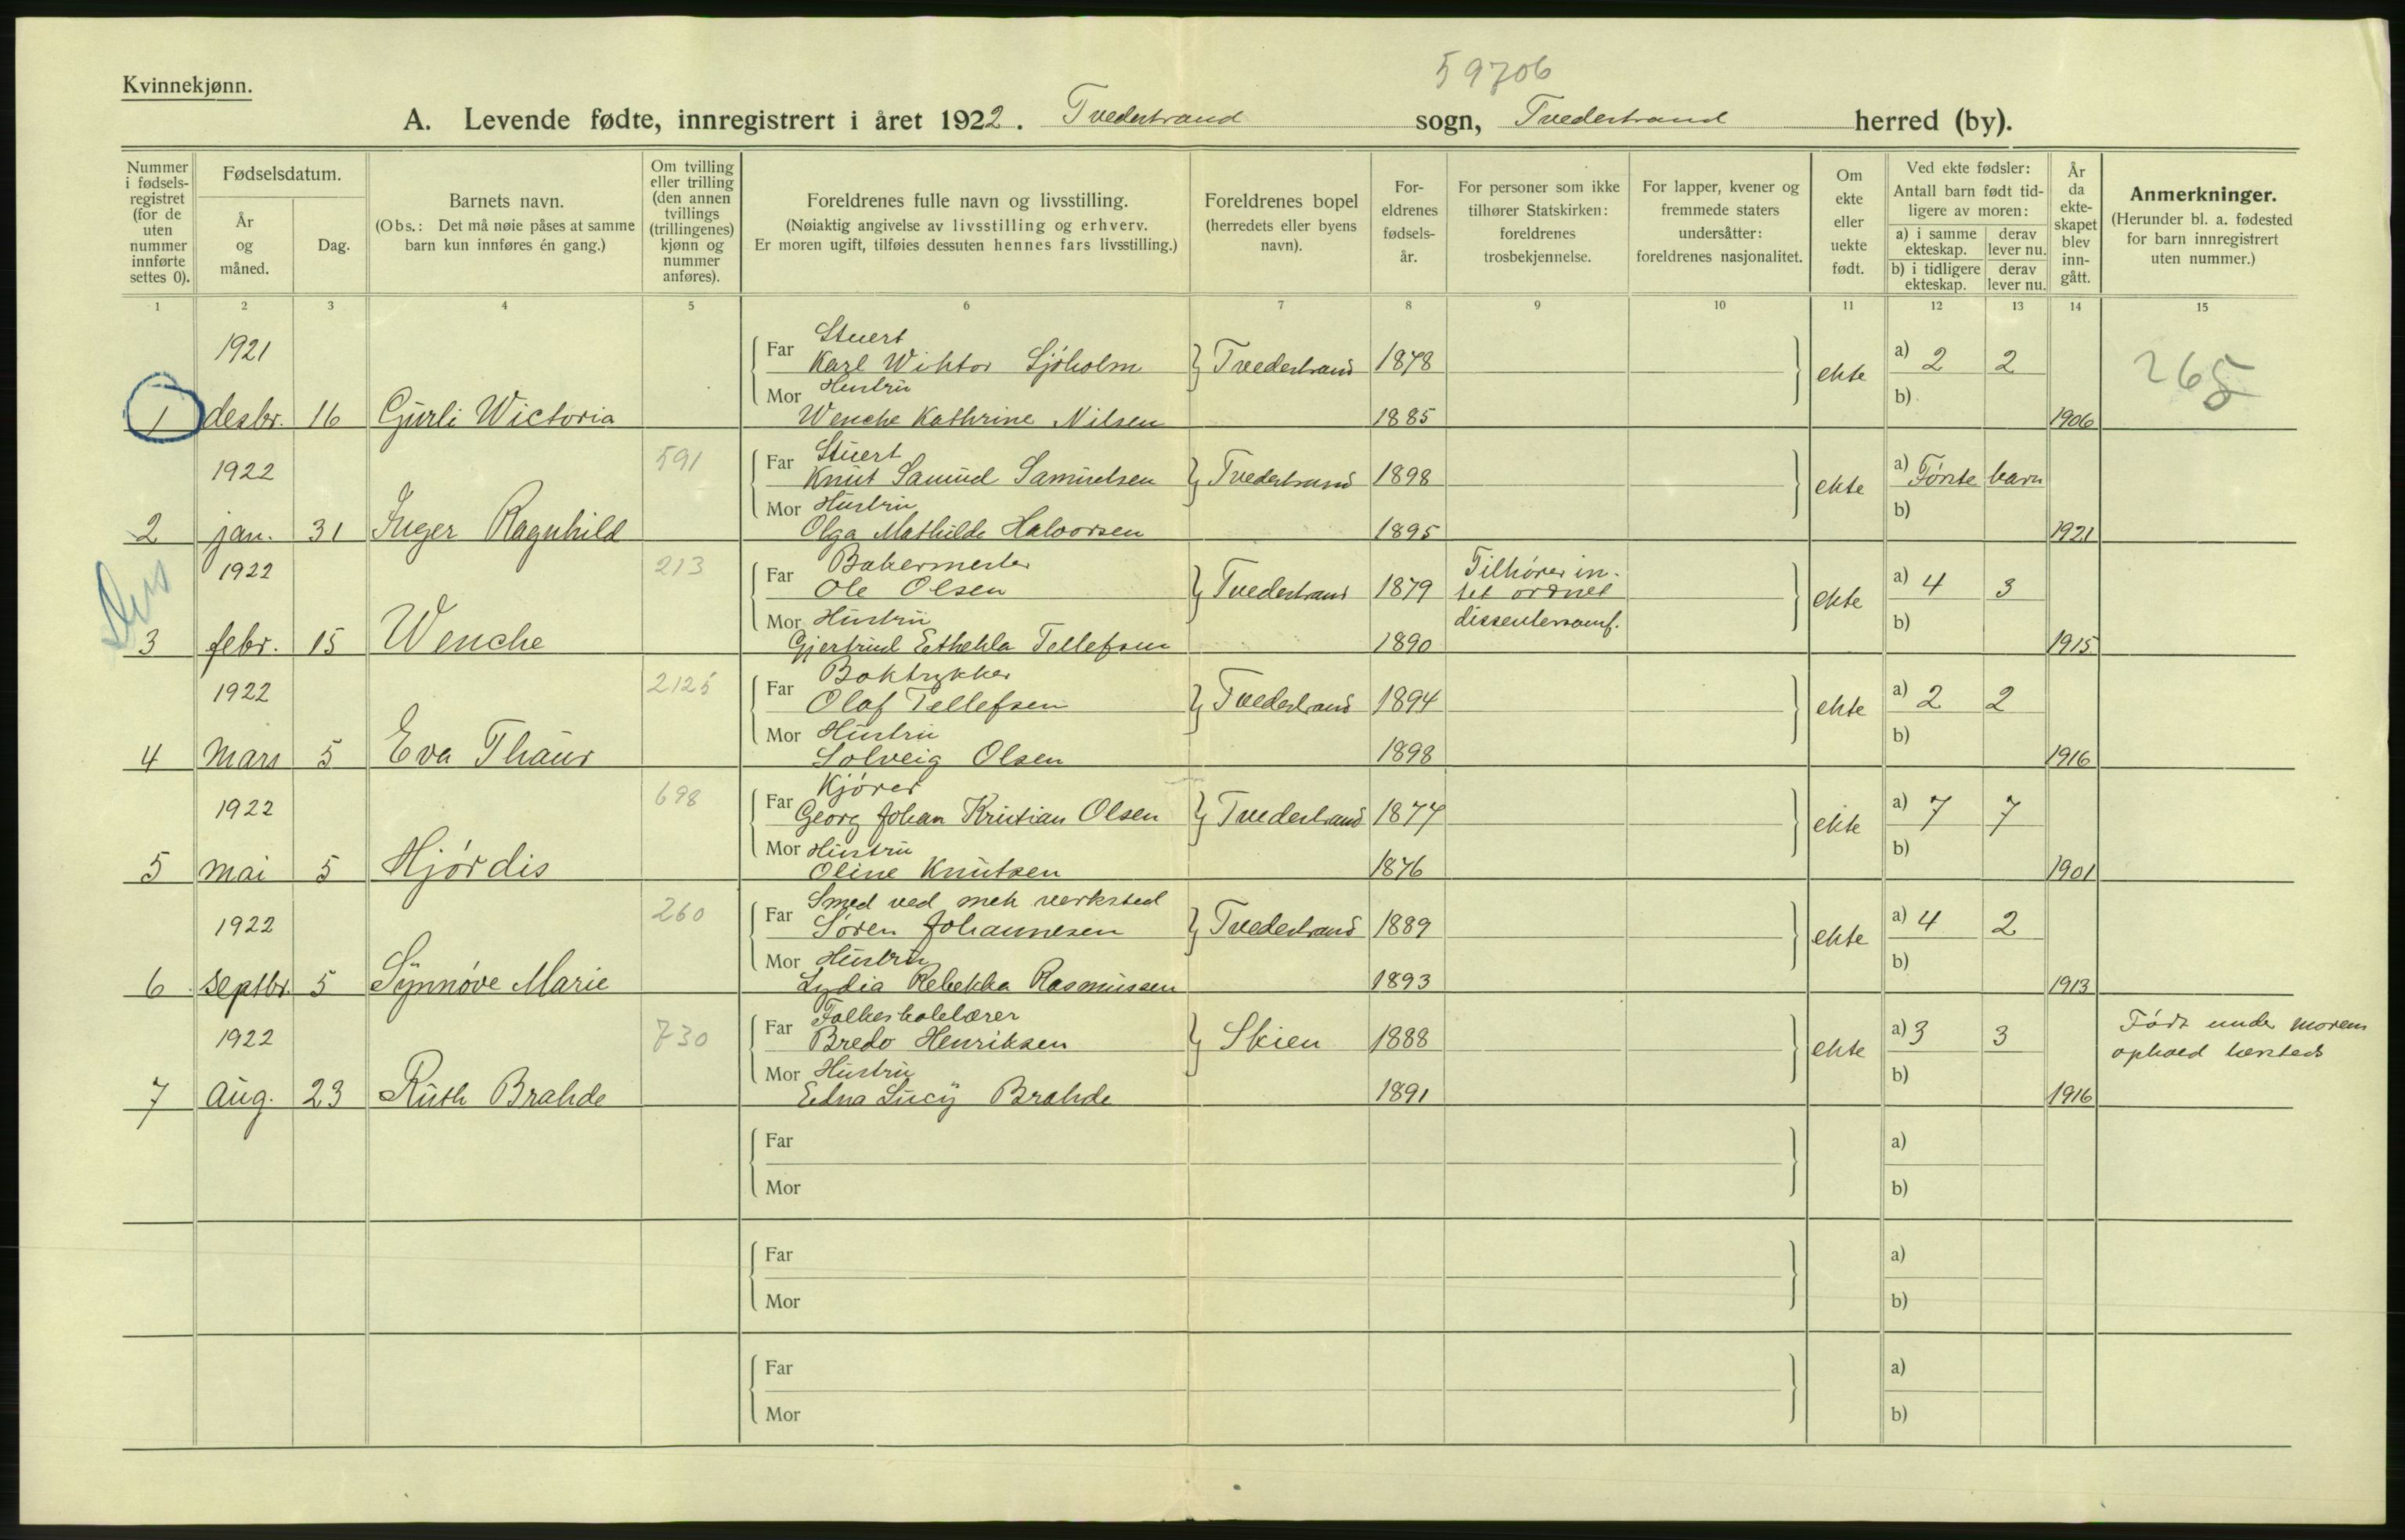 59706
Kvinnekjønn.
A. Levende fødte, innregistrert i året 1922. Tvedestrand sogn, Tvedestrand herred (by).
Nummer i fødsels-registret (for de uten nummer innførte settes 0).
Fødselsdatum.
År og måned.
Dag.
Barnets navn.
(Obs.: Det må nøie påses at samme barn kun innføres én gang.)
Om tvilling eller trilling (den annen tvillings (trillingenes) kjønn og nummer anføres).
Foreldrenes fulle navn og livsstilling.
(Nøiaktig angivelse av livsstilling og erhverv.
Er moren ugift, tilføies dessuten hennes fars livsstilling.)
Foreldrenes bopel
(herredets eller byens navn).
For-eldrenes fødsels-år.
For personer som ikke tilhører Statskirken: foreldrenes trosbekjennelse.
For lapper, kvener og fremmede staters undersåtter: foreldrenes nasjonalitet.
Om ekte eller uekte født.
Ved ekte fødsler:
Antall barn født tid-ligere av moren:
a) i samme ekteskap.
derav lever nu.
b) i tidligere ekteskap.
derav lever nu.
År da ekte-skapet blev inn-gått.
Anmerkninger.
(Herunder bl. a. fødested for barn innregistrert uten nummer.)
1 2 3 4 5 6 7 8 9 10 11 12 13 14 15
1921
Stuert
Far Karl Wiktor Sjøholm Tvedestrand 1878 ekte a) 2 2 265
Mor Hustru b)
1 desbr. 16 Gurli Wictoria Wenche Kathrine Nilsen 1885 1906
1922 591
Stuert
Far Knut Samuel Samuelsen Tvedestrand 1898 ekte a) Første barn
Mor Hustru b)
2 jan. 31 Inger Ragnhild Olga Mathilde Halvorsen 1895 1921
1922 213
Bakermester
Far Ole Olsen Tvedestrand 1879 Tilhører in-
tet ordnet ekte a) 4 3
Mor Hustru dissentersamf. b)
3 febr. 15 Wenche Gjertrud Tellefsen 1890 1915
Diss
1922 2125
Boktrykker
Far Olaf Tellefsen Tvedestrand 1894 ekte a) 2 2
Mor Hustru b)
4 Mars 5 Eva Solveig Olsen 1898 1916
1922 698
Kjører
Far Georg Johan Kristian Olsen Tvedestrand 1877 ekte a) 7 7
Mor Hustru b)
5 mai 5 Hjørdis Oline Knutsen 1876 1901
1922 260
Smed ved mek verksted
Far Søren Johannesen Tvedestrand 1889 ekte a) 4 2
Mor Hustru b)
6 septbr. 5 Synnøve Marie Lydia Rebekka Rasmussen 1893 1913
1922 730
Folkeskolelærer
Far Bredo Henriksen Skien 1888 ekte a) 3 3 Født under morens
ophold hersteds
Mor Hustru b)
7 Aug. 23 Ruth Brahde Edna Lucy Brahde 1891 1916
Far a)
Mor b)
Far a)
Mor b)
Far a)
Mor b)